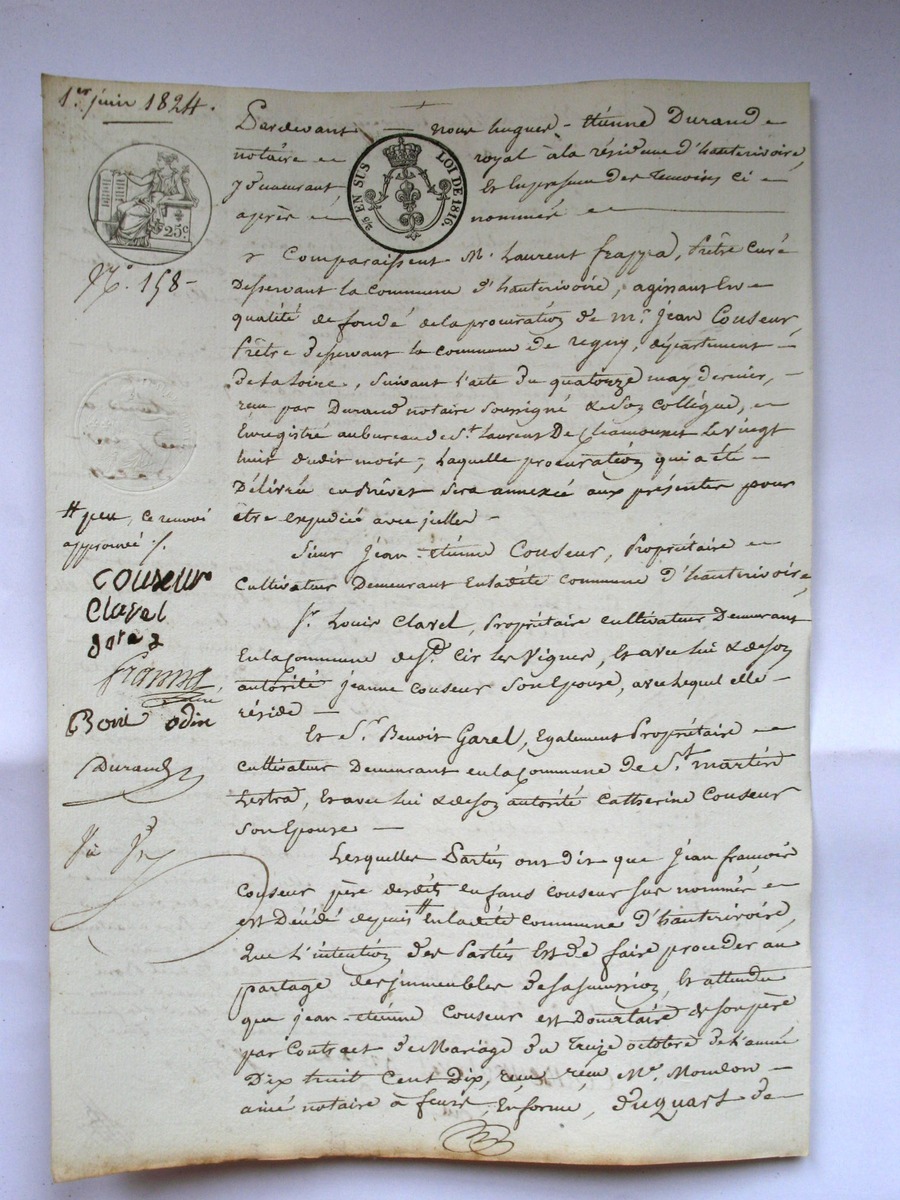 1.er juin 1824.
Pardevant nous hugues-étienne Durand
notaire royal à la résidence d'hauterivoire,
y demeurant Et En presence des Temoins ci
après nommés
EN SUS LOI DE 1816.
25c.
N.o 158
Comparaissent M. Laurent frappa, Prêtre Curé
Desservant la commune d'hauterivoire, agissant En
qualité de fondé de la procuration de mr. Jean Couseur,
Prêtre desservant la commune de regny, département
de la Loire, suivant l'acte du quatorze may dernier,
reçu par Durand notaire soussigné & son collègue,
Enregistré au bureau de St. Laurent De Chamousset le vingt
huit dudit mois, Laquelle procuration qui a été
Délivrée en Brévet sera annexée aux présentes pour
être expédiée avec icelles
# peu, ce renvoi
approuvé /.
Sieur Jean-étienne Couseur, Propriétaire
Cultivateur Demeurant En ladite Commune d'hauterivoire,
couseur
Clavel
Sr. Louis Clavel, Propriétaire cultivateur Demeurant
En la Commune de St. Cir les Vignes, Et avec lui & de son
autorité jeanne Couseur son Epouse, avec lequel elle
réside
frappa
Boni odin
Et Sr. Benoit Garel, Egalement Propriétaire
Cultivateur Demeurant en la Commune de St. martin
Lestra, Et avec lui & de son autorité Catherine Couseur
son Epouse
Durand
Lesquelles Parties ont dit que Jean françois
Couseur père desdits enfans couseur sus nommés
est Décédé depuis # En ladite commune d'hauterivoire,
Que L'intention des Parties Est de faire procéder au
partage des immeubles de sa succession, Et attendu
que jean-étienne Couseur est Donataire de son père
par Contract de Mariage du Treize octobre de l'année
Dix huit Cent Dix, reçu Me.
ainé notaire à feurs, En forme, du Quart de